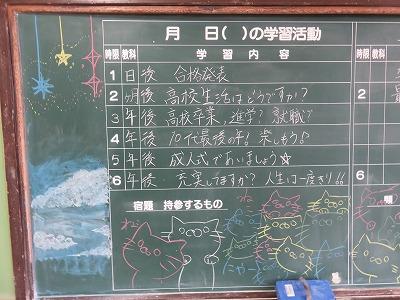 月 日( )の学習活動
時限 教科 学習内容 時限 教科
1 日後 合格発表
2 ヶ月後 高校生活はどうですか? 2
3 年後 高校卒業,進学?就職?
4 年後 10代最後の年!楽しもう♪
5 年後 成人式であいましょう☆
6 年後 充実してますか?人生は一度きり!!
宿題 持参するもの
ねこ
にゃー